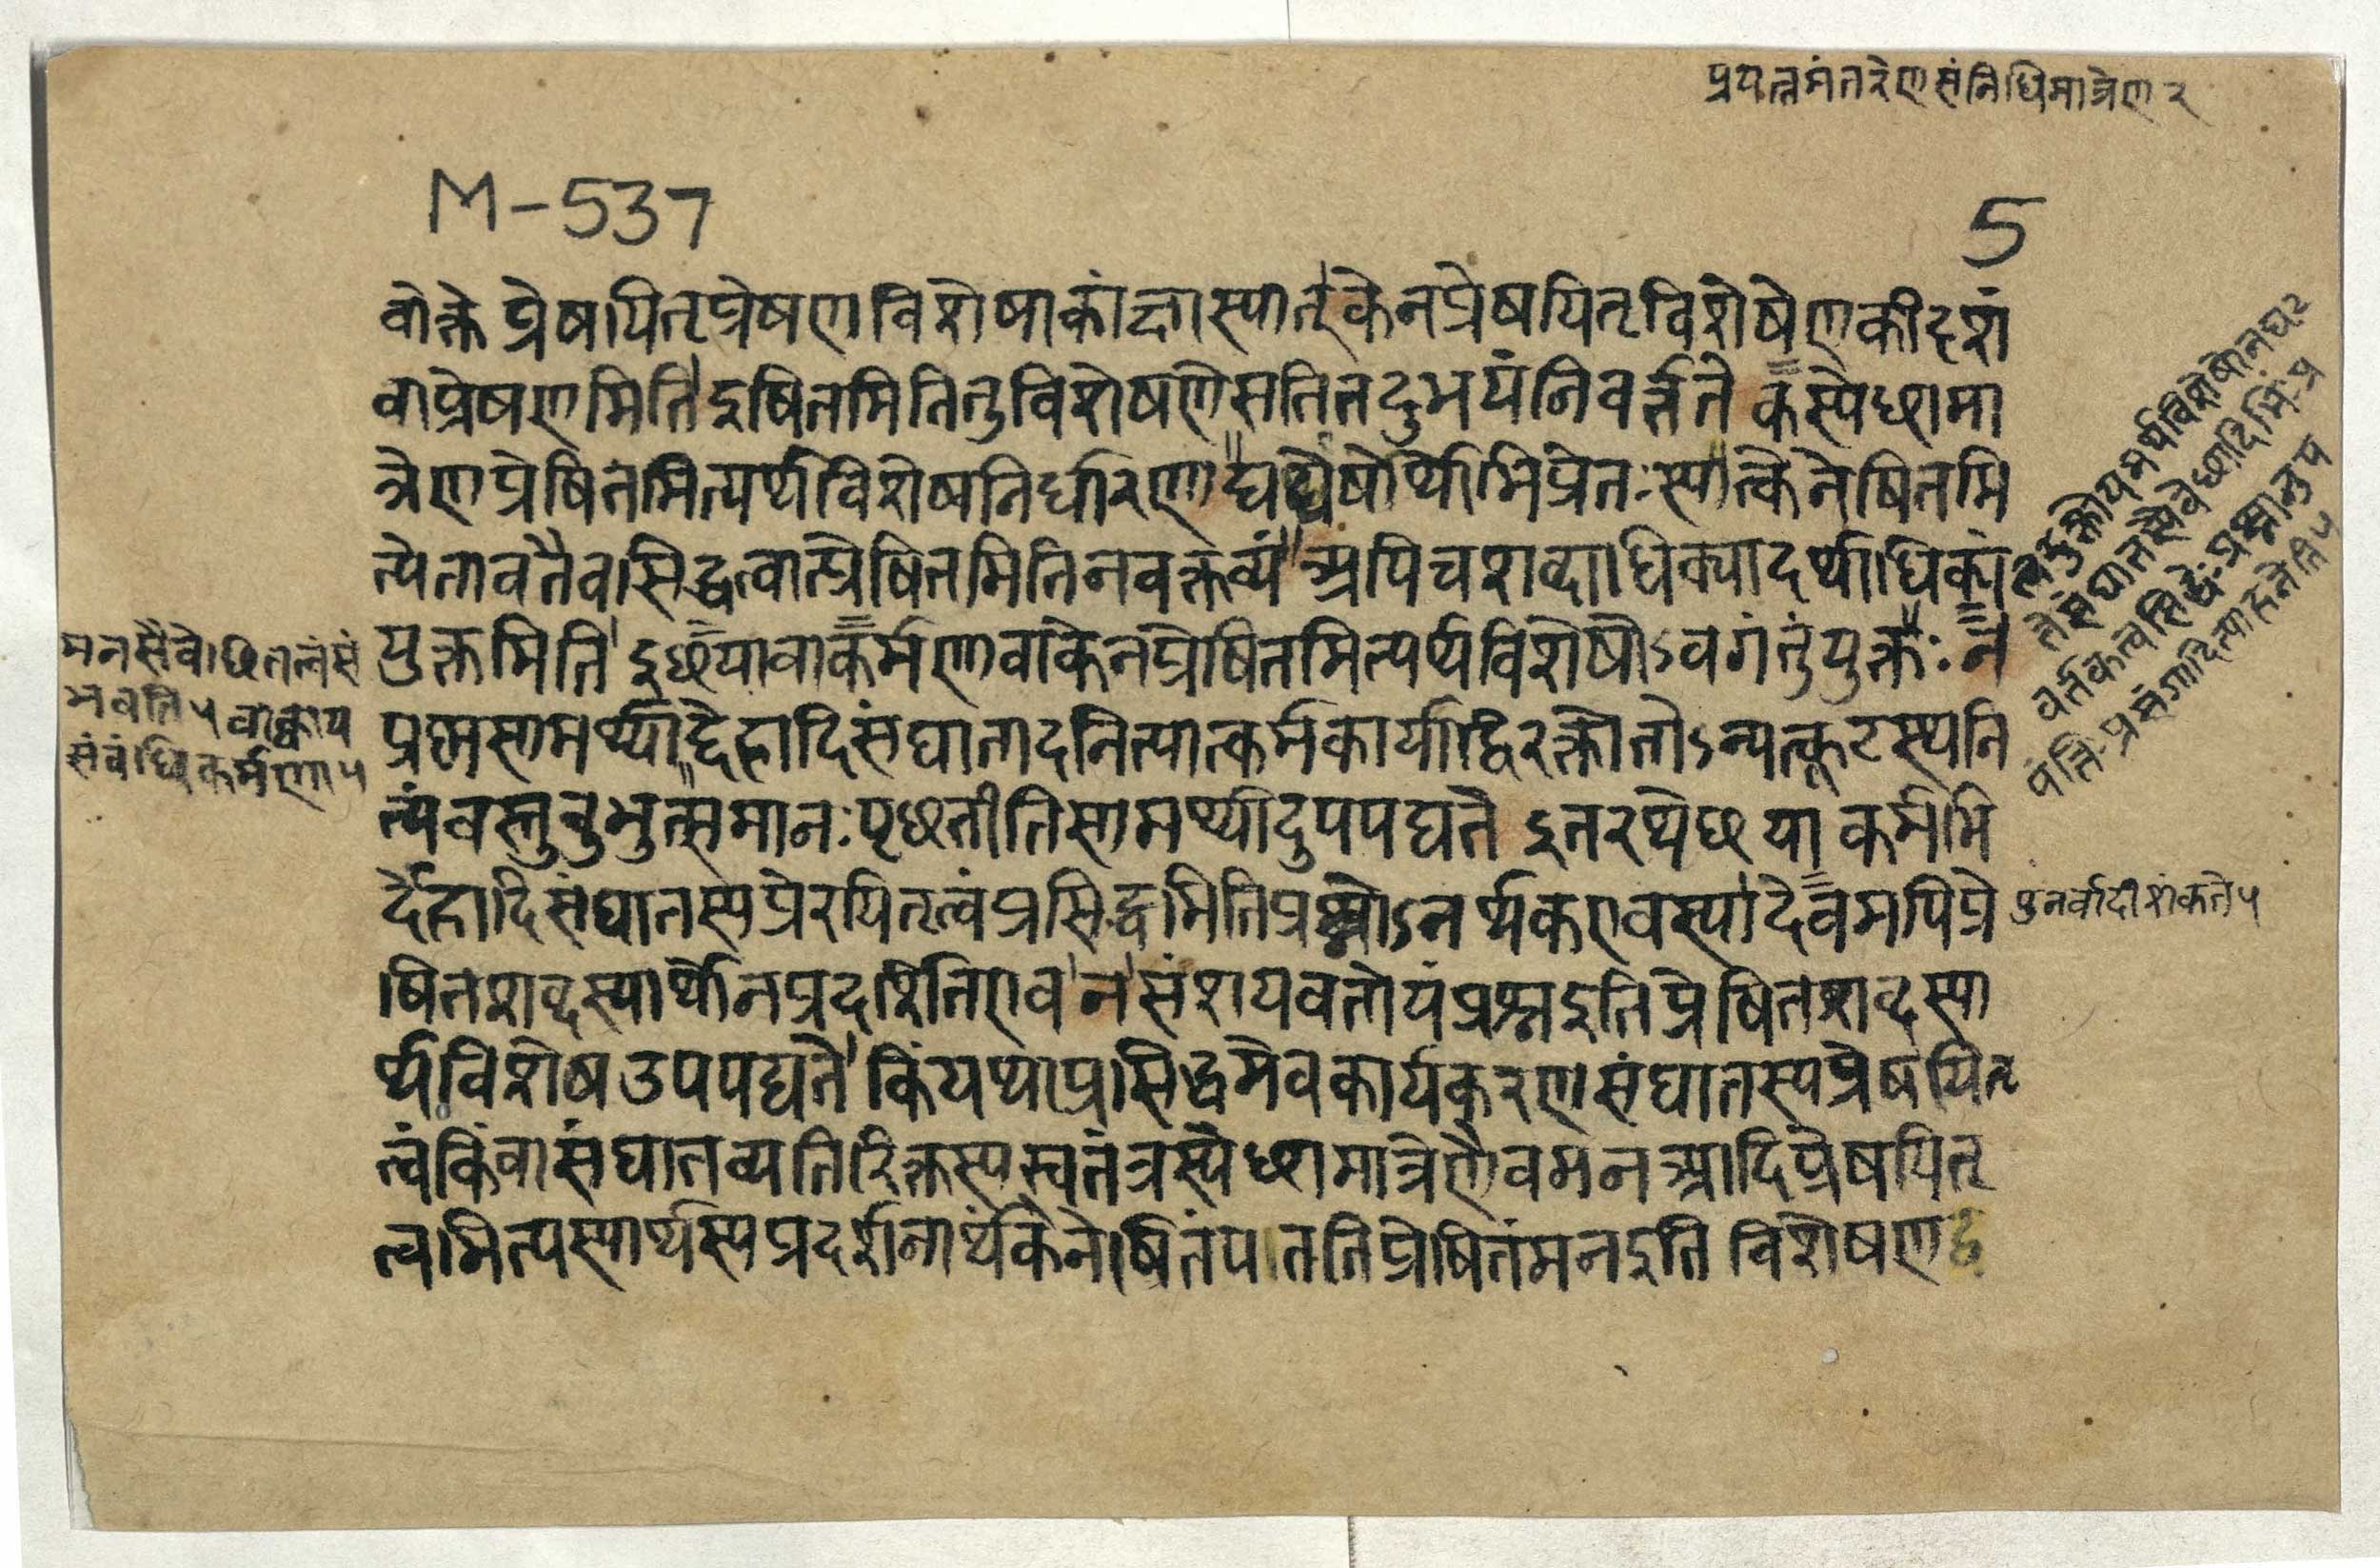 प्रयत्नमंतरेणसंनिधिमात्रेण २
M-537
5
वोक्ते प्रेषयितृप्रेषणविशेषाकांक्षास्यात् केनप्रेषयितृविशेषेणकीदृशं
वाप्रेषणमिति इषितमितितुविशेषणेसतितदुभयंनिवर्त्तते कस्येछामा
त्रेणप्रेषितमित्यर्थविशेषनिर्धारणा यद्येषोर्थोभिप्रेतःस्यात्केनेषितमि
त्येतावतैवसिद्धत्वात्प्रेषितमितिनवक्तव्यं अपिचशब्दाधिक्यादर्थाधिक्यं
युक्तमिति इछयावाकर्मणावाकेनप्रेषितमित्यर्थविशेषोऽवगंतुंयुक्तः न
प्रश्नसामर्थ्याद्देहादिसंघातादनित्यात्कर्मकार्याद्विरक्तोतोऽन्यत्कूटस्थनि
त्यंवस्तुबुभुत्समानःपृछतीतिसामर्थ्यादुपपद्यते इतरथेछयाकर्मभि
र्देहादिसंघातस्यप्रेरयितृत्वंप्रसिद्धमितिप्रश्नोऽनर्थकएवस्यादेवमपिप्रे
षितशब्दस्यार्थोनप्रदर्शितएव न संशयवतोयंप्रश्नइतिप्रेषितशब्दस्या
र्थविशेषउपपद्यते किंयथाप्रसिद्धमेवकार्यकरणसंघातस्यप्रेषयितृ
त्वंकिंवासंघातव्यतिरिक्तस्यस्वतंत्रस्येछामात्रेणैवमनआदिप्रेषयितृ
त्वमित्यस्यार्थस्यप्रदर्शनार्थंकेनेषितंपततिप्रेषितंमनइति विशेषणद्व
मनसैवेछितत्वंसं
भवति ५ वाक्काय
संबंधिकर्मणा ५
युक्तोयमर्थविशेषोनघट
तेसंघातस्यैवेछादिभिःप्र
वर्तकत्वसिद्धेःप्रश्नानुप
पत्तिःप्रसंगादित्याहनेति ५
पुनर्वादीशंकते ५